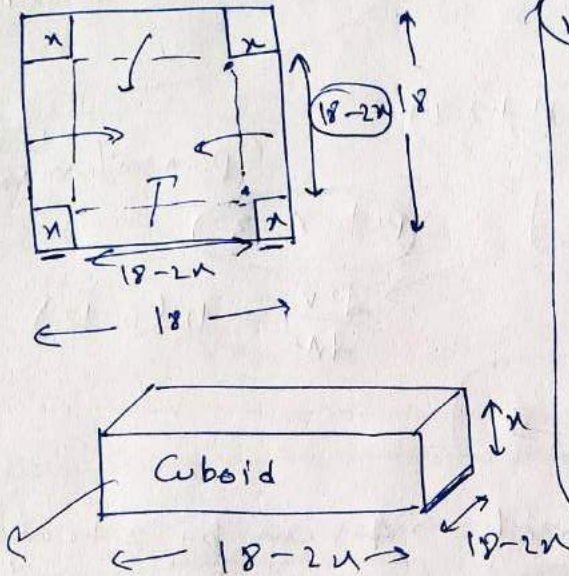 x x
18-2x 18
x x
18-2x
18
x
Cuboid
18-2x 18-2x